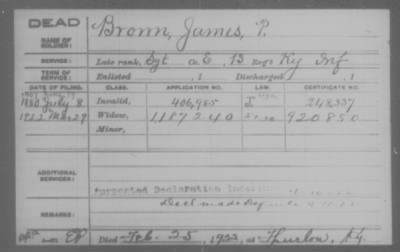 DEAD
NAME OF SOLDIER: Brown, James, P.
SERVICE: Late rank, Sgt Co. E, 13 Reg't Ky Inf
TERM OF SERVICE: Enlisted , 1 Discharged , 1
DATE OF FILING. CLASS. APPLICATION NO. LAW. CERTIFICATE NO.
1880 July 8 Invalid, 406,985 248,337
1922 Mar 29 Widow, 1187240 920850
Minor,
ADDITIONAL SERVICES:
Purported Declaration
REMARKS:
Died Feb. 25 1922, at Thurlow, Ky.